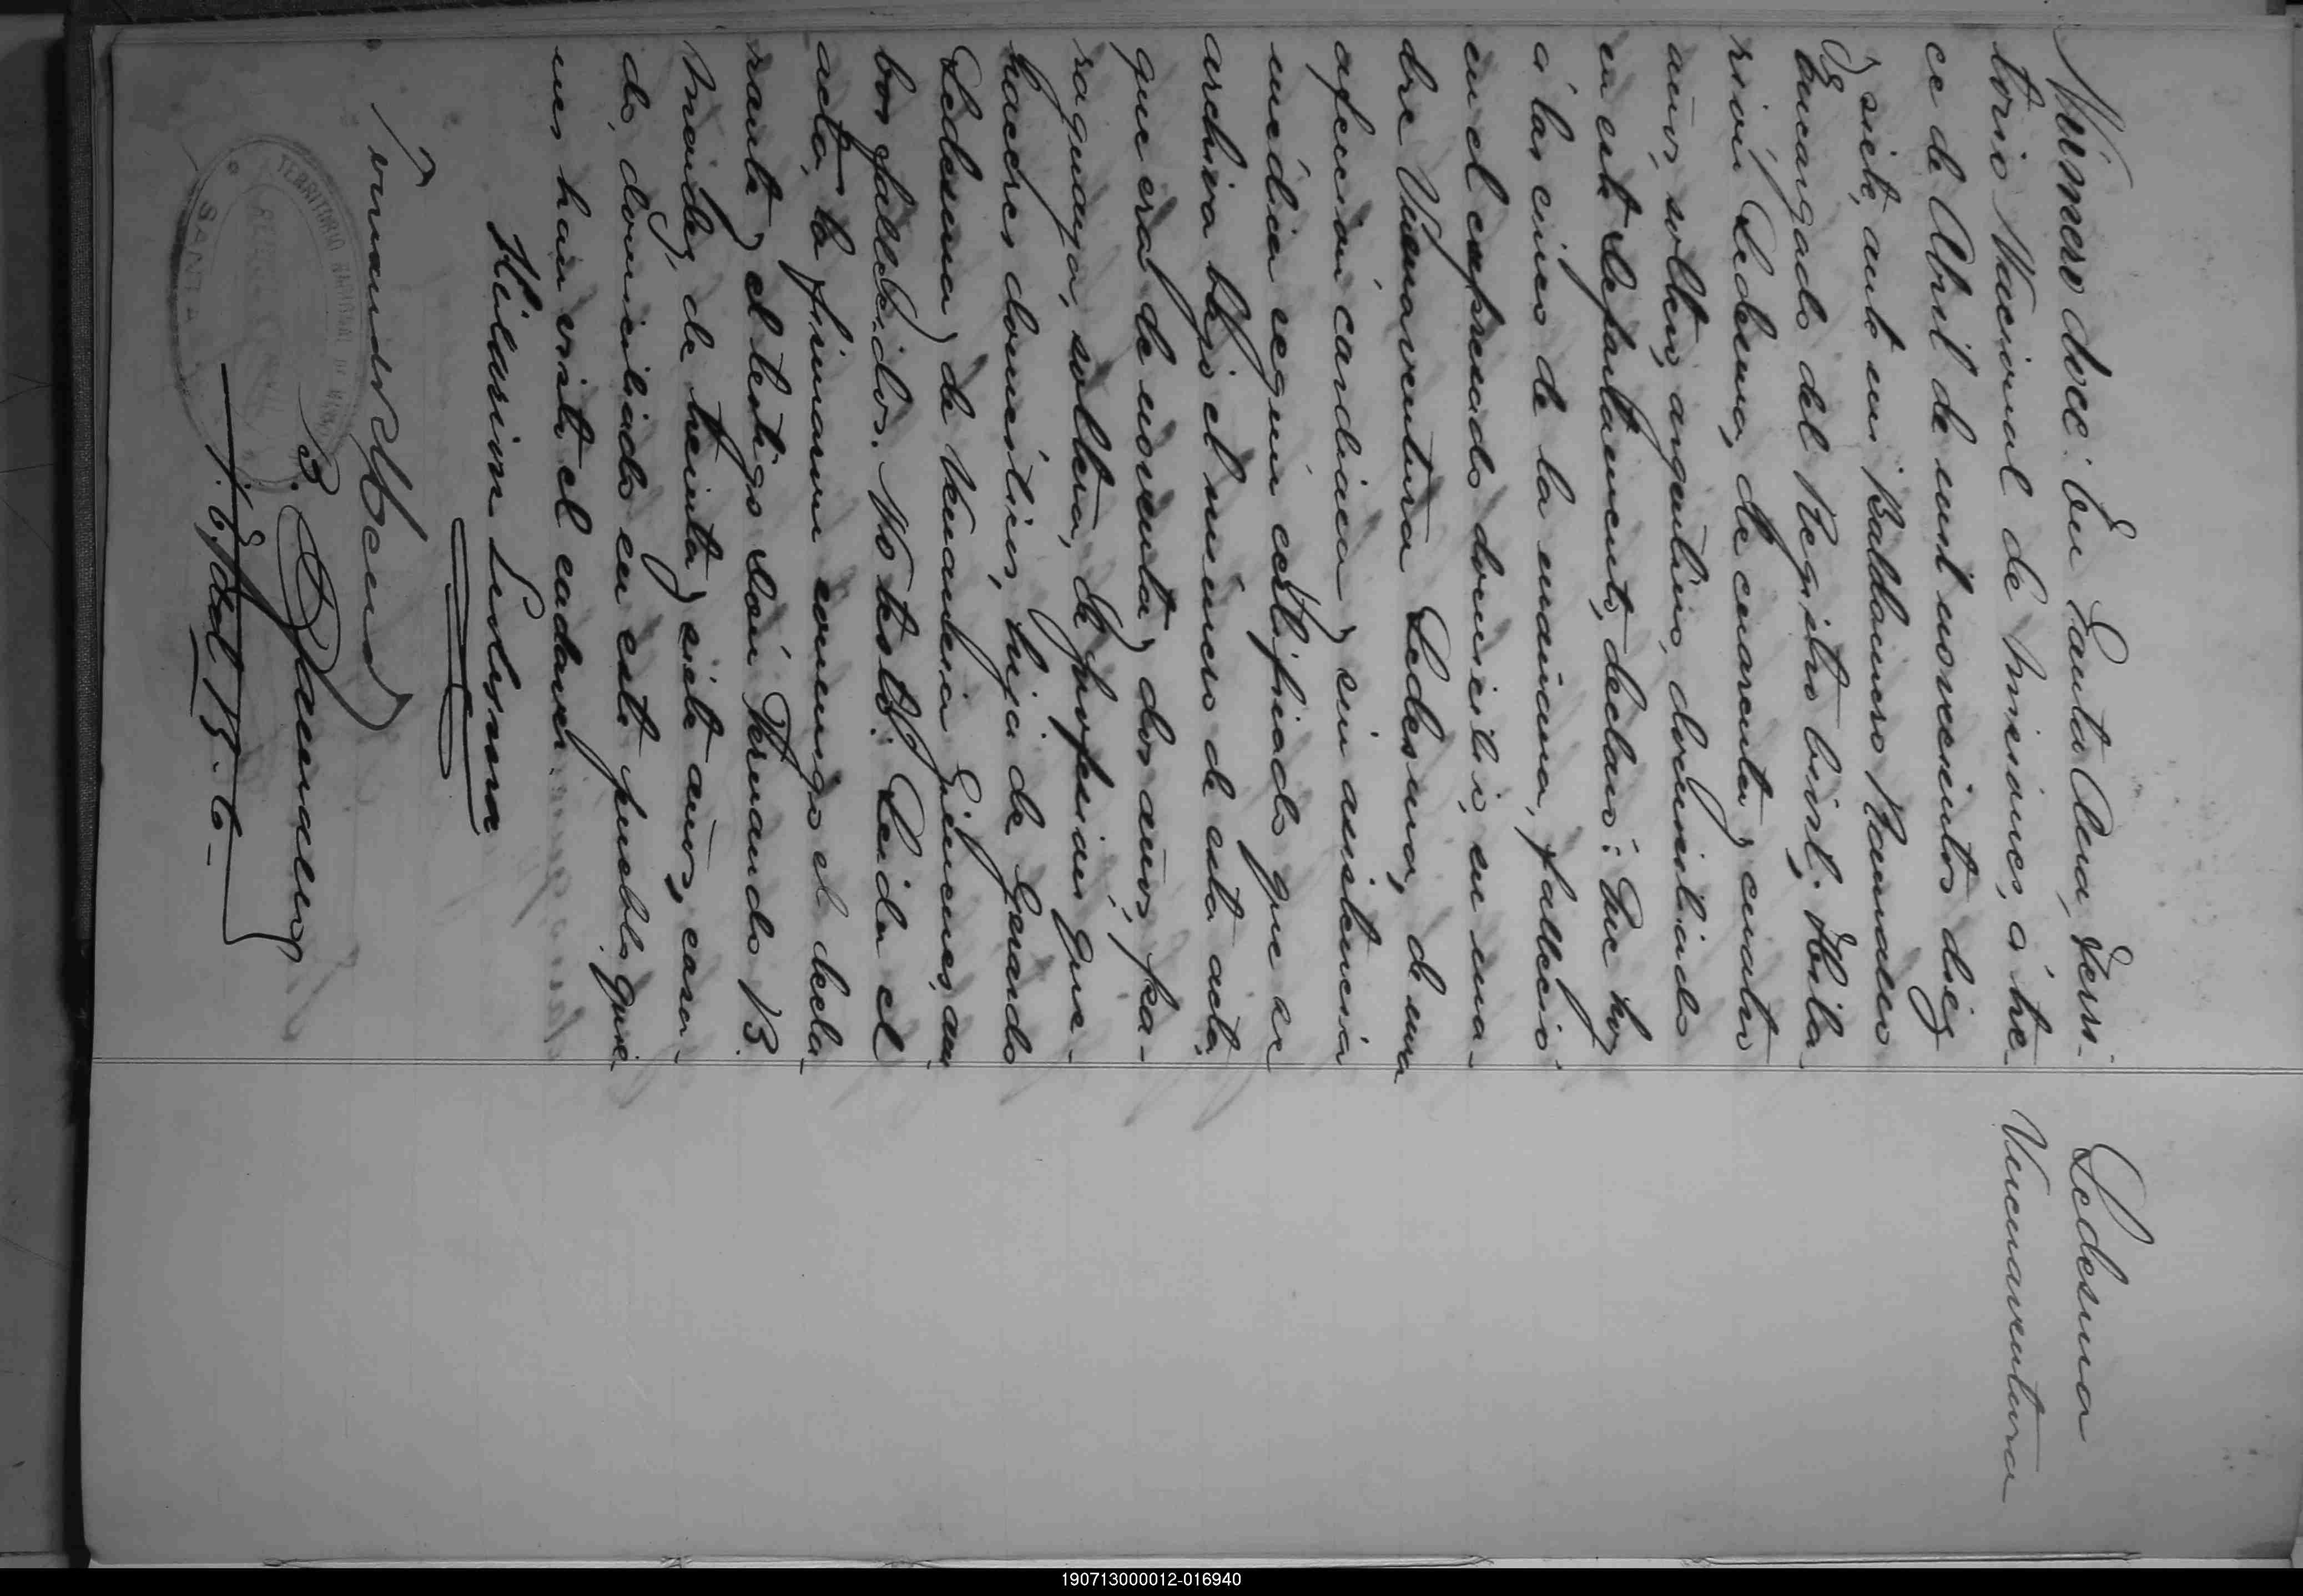 Ledesma
Venuaventura
Número doce: En Santa Ana, Terri-
torio Nacional de Misiones, á tre-
ce de Abril de mil novecientos diez
y siete, ante mi Baldomero
Encargado del Registro Civil; Hila-
rión Ledesma, de cuarenta y cuatro
años, soltero, argentino, domiciliado
en este departamento, declaró: Que hoy
á las cinco de la mañana, falleció
en el expresado domicilio, su ma-
dre Venuaventura Ledesma, de una
afección cardiaca y sin asistencia
médica según certificado que se
archiva bajo el número de esta acta,
que era de noventa y dos años, pa-
raguaya, soltera, de profesión que-
haceres domésticos, hija de
Ledesma y de Venancia am-
bos fallecidos. No testó. Leida el
acta, la firmaron conmigo el decla-
rante y el testigo Fernando B.
Méndez, de treinta y siete años, casa-
do, domiciliado en este pueblo, quie-
nes han visto el cadaver.
Hilarion Ledesma
Fernando
B.
TERRITORIO NACIONAL DE MISIONES
SANTA A
190713000012-016940